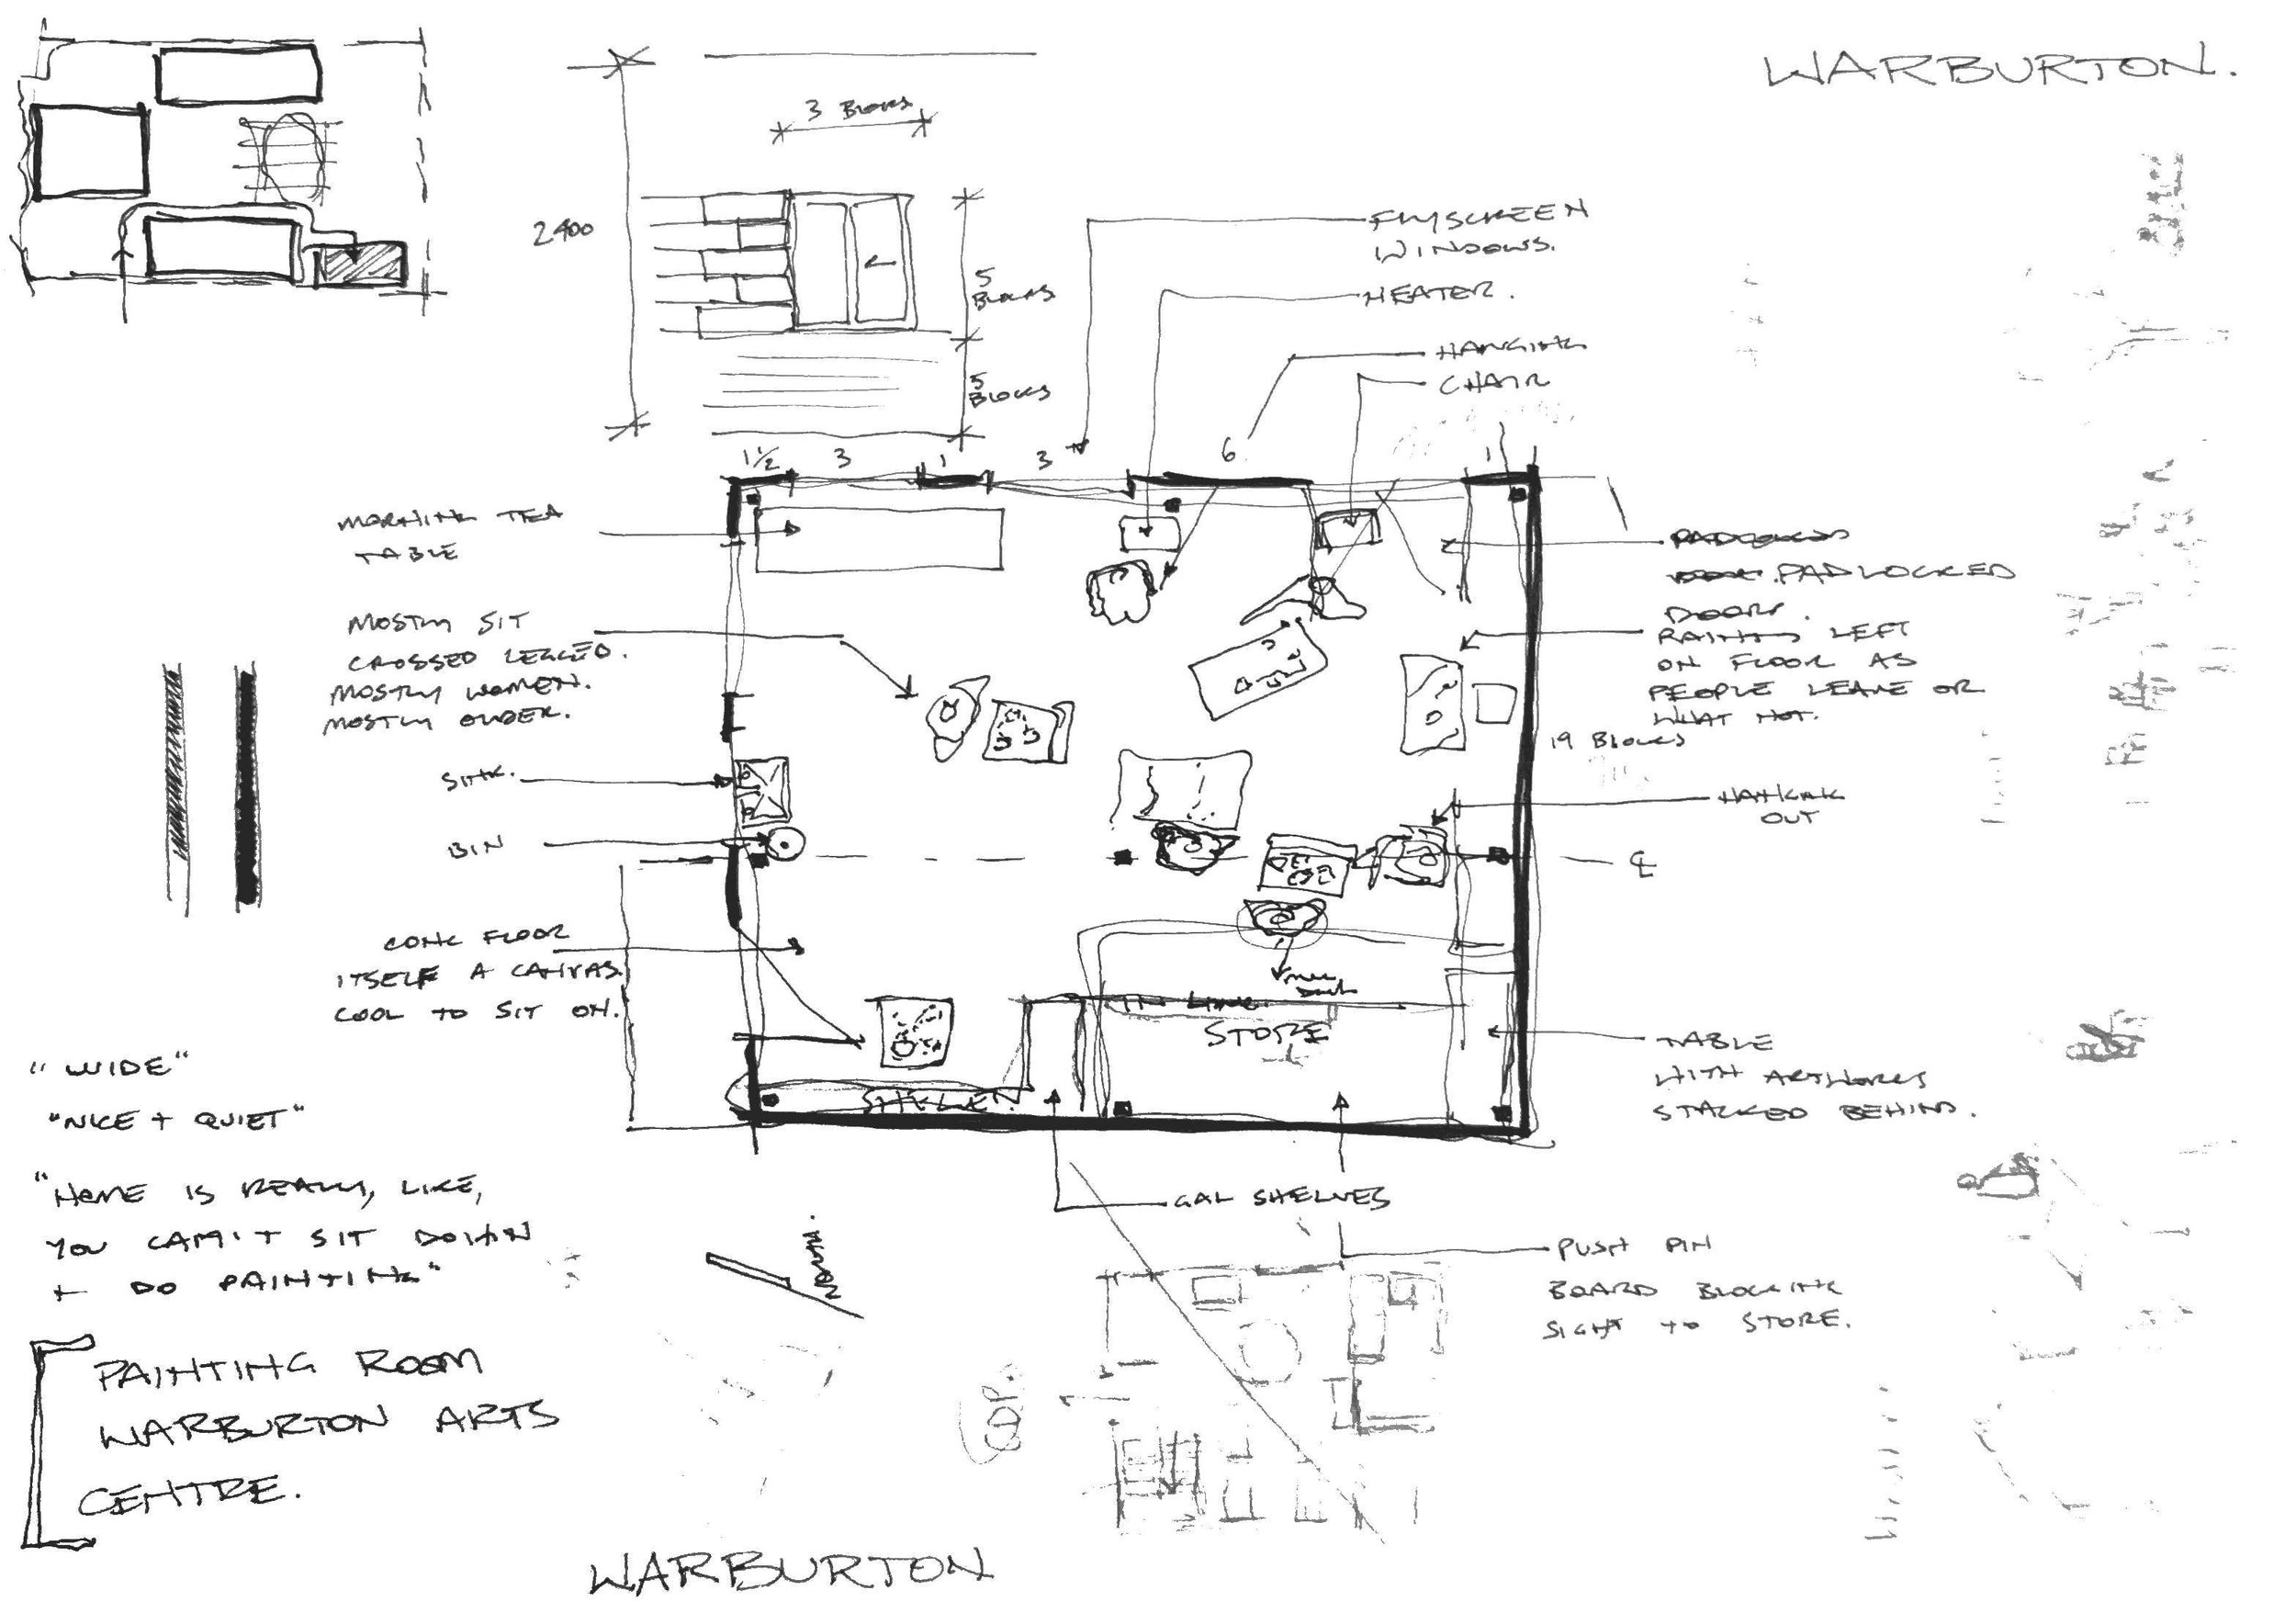 WARBURTON.
3 BLOCKS
2400
5 BLOCKS
5 BLOCKS
FLYSCREEN
WINDOWS.
HEATER.
HANGING
CHAIR
1 1/2
3
1
3
6
1
MORNING TEA
TABLE
PADLOCKED
DOORS.
PAINTS LEFT
ON FLOOR AS
PEOPLE LEAVE OR
WHAT NOT.
19 BLOCKS
MOSTLY SIT
CROSSED LEGGED.
MOSTLY WOMEN.
MOSTLY OLDER.
SINK.
BIN
HANGING
OUT
CL
CONC FLOOR
ITSELF A CANVAS.
COOL TO SIT ON.
STORE
SHELF
TABLE
WITH ARTWORKS
STACKED BEHIND.
"WIDE"
"NICE + QUIET"
"HOME IS REALLY, LIKE,
YOU CAN'T SIT DOWN
+ DO PAINTING"
GAL SHELVES
NORTH.
PUSH PIN
BOARD BLOCKING
SIGHT TO STORE.
PAINTING ROOM
WARBURTON ARTS
CENTRE.
WARBURTON